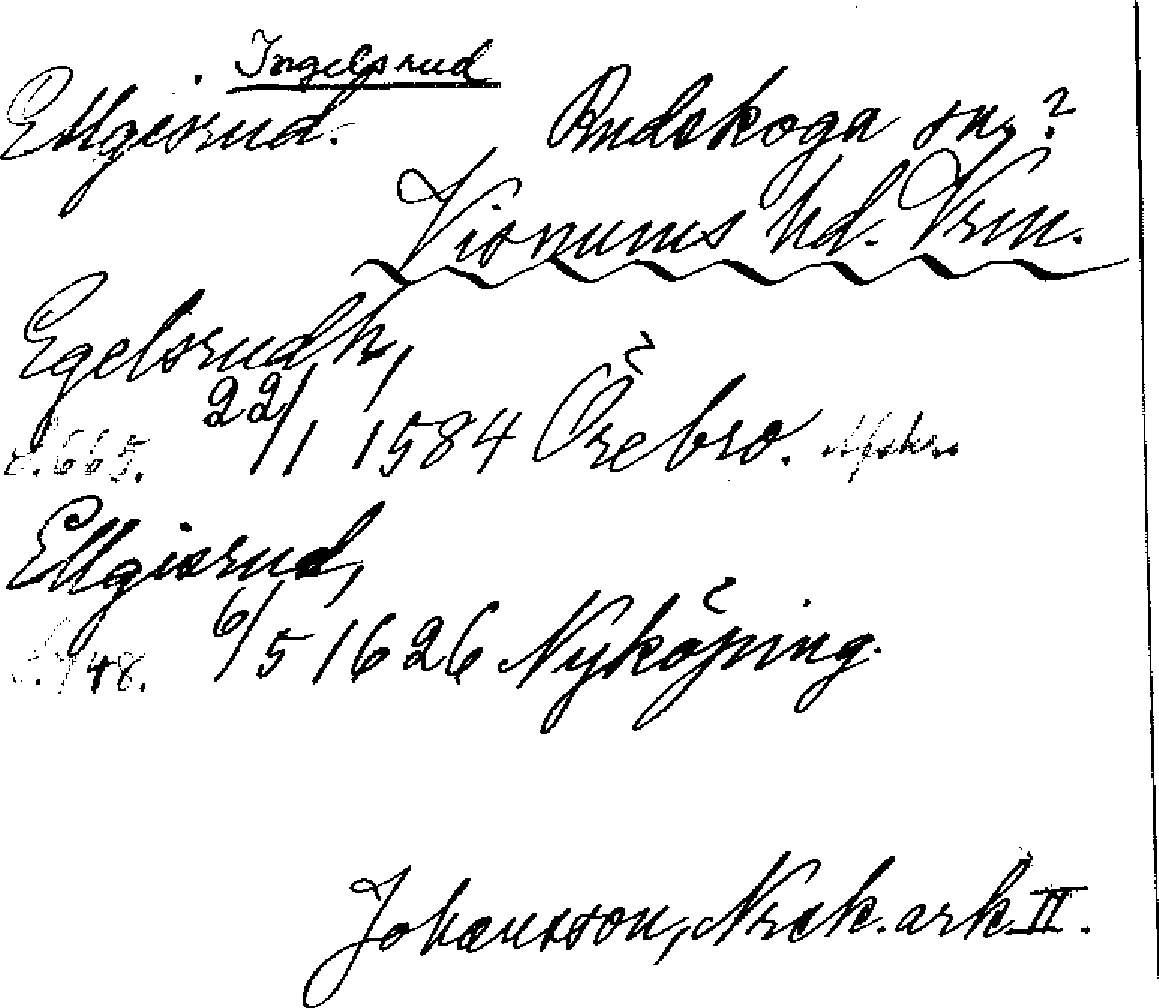 Ingelsrud
Ellgisrud. Rudskoga sn, ?
Visnums hd. Vrm.
Egelsrudh,
s. 665. 22/1 1584 Örebro. Afskr.
Ellgisrud,
s. 148. 6/5 1626 Nyköping.
Johansson, Nrck. ark. II.